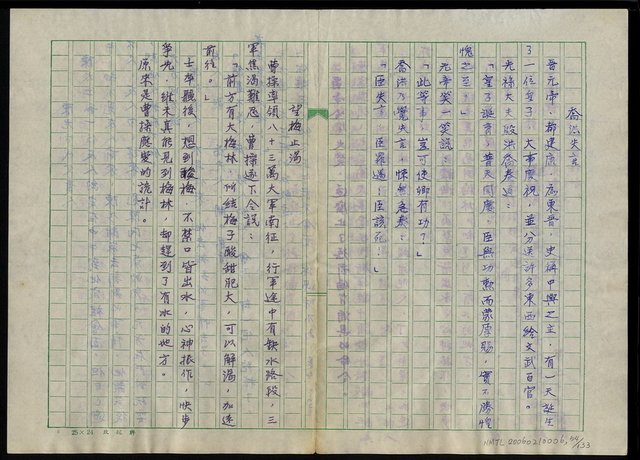 喬洪失言
晉元帝，都建康，為東晉，史稱中興之主，有一天誕生
了一位皇子，大事慶祝，並分送許多東西給文武百官。
光祿大夫殷洪喬奏道：
「皇子誕育，普天同慶，臣無功勳而蒙厚賜，實不勝惶
愧之至！」
元帝笑一笑說：
「此等事，豈可使卿有功？」
喬洪乃覺失言，
「臣失言，臣罪過！臣該死！」
望梅止渴
曹操率領八十三萬大軍南征，行軍途中有缺水路段，三
軍焦渴難忍，曹操遂下令說：
「前方有大梅林，所結梅子酸甜肥大，可以解渴，加速
前往。」
士卒聽後，想到酸梅，不禁口皆出水，心神振作，快步
爭先，雖未真能見到梅林，卻趕到了有水的地方。
原來是曹操應變的詭計。
25×24
NMTL 20060210006